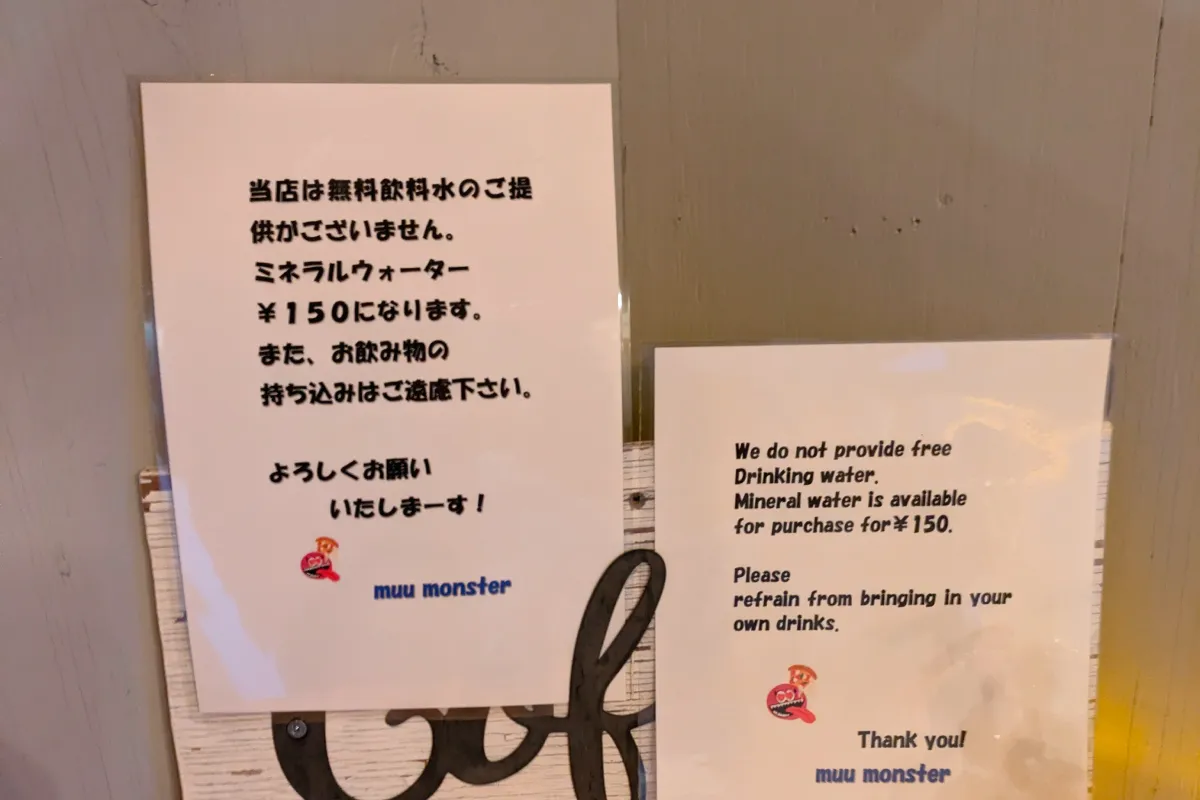 当店は無料飲料水のご提
供がございません。
ミネラルウォーター
￥１５０になります。
また、お飲み物の
持ち込みはご遠慮下さい。
よろしくお願い
いたしまーす！
muu monster
We do not provide free
Drinking water.
Mineral water is available
for purchase for￥150.
Please
refrain from bringing in your
own drinks.
Thank you!
muu monster